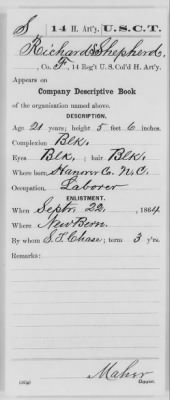 S | 14 H. Art'y. | U.S.C.T.
Richard Shepherd,
, Co. F, 14 Reg't U.S. Col'd H. Art'y.
Appears on
Company Descriptive Book
of the organization named above.
DESCRIPTION.
Age 21 years; height 5 feet 6 inches.
Complexion Blk.
Eyes Blk.; hair Blk.
Where born Hanover Co. N.C.
Occupation, Laborer
ENLISTMENT.
When Septr. 22, 1864
Where New Bern.
By whom S.T. Chase; term 3 y'rs.
Remarks:
Maher
Copyist.